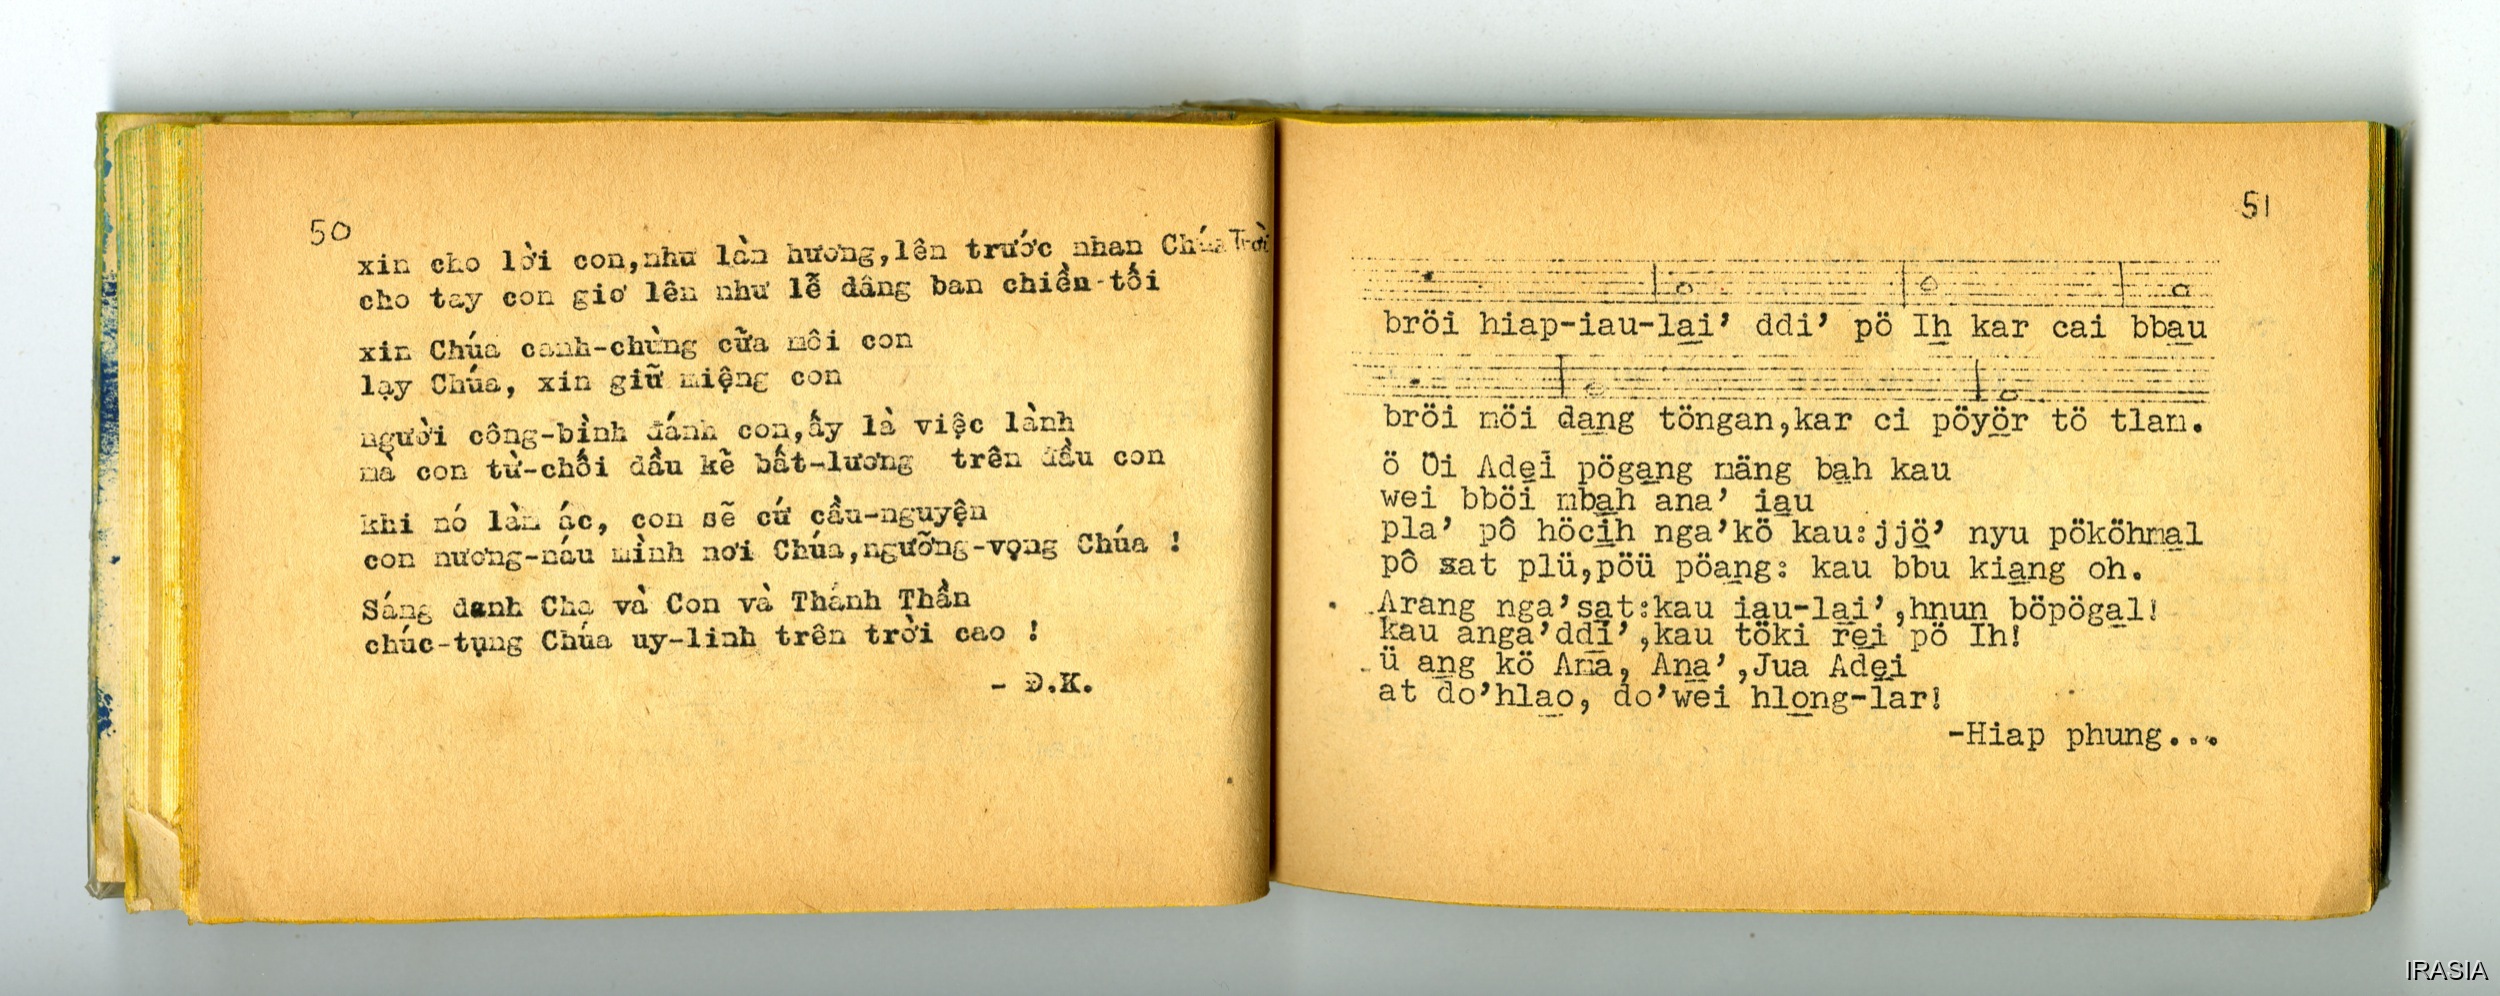 50
xin cho lời con,như làn hương,lên trước nhan Chúa Trời
cho tay con giơ lên như lễ dâng ban chiều-tối
xin Chúa canh-chừng cữa môi con
lạy Chúa, xin giữ miệng con
người công-bình đánh con,ấy là việc lành
mà con từ-chối dầu kẽ bất-lương trên đầu con
khi nó làm ác, con sẽ cứ cầu-nguyện
con nương-náu mình nơi Chúa,ngưỡng-vọng Chúa !
Sáng danh Cha và Con và Thánh Thần
chúc-tụng Chúa uy-linh trên trời cao !
- Đ.K.
51
bröi hiap-iau-la̲i̲' ddi' pö Ih̲ kar cai bba̲u̲
bröi möi da̲n̲g töngan,kar ci pöyö̲r tö tlam.
ö Öi Ade̲i̲ pöga̲n̲g mäng ba̲h kau
wei bböi mba̲h ana' ia̲u
pla' pô höci̲h nga'kö kau:jjö̲' nyu pököhma̲l
pô sat plü,pöü pöa̲n̲g: kau bbu kia̲n̲g oh.
Arang nga'sa̲t:kau ia̲u-la̲i̲',hnun böpöga̲l!
kau anga'ddi',kau töki re̲i̲ pö Ih!
ü a̲n̲g kö Ama̲, Ana̲',Jua Ade̲i̲
at do'hla̲o̲, do'wei hlo̲n̲g-lar!
-Hiap phung...
IRASIA